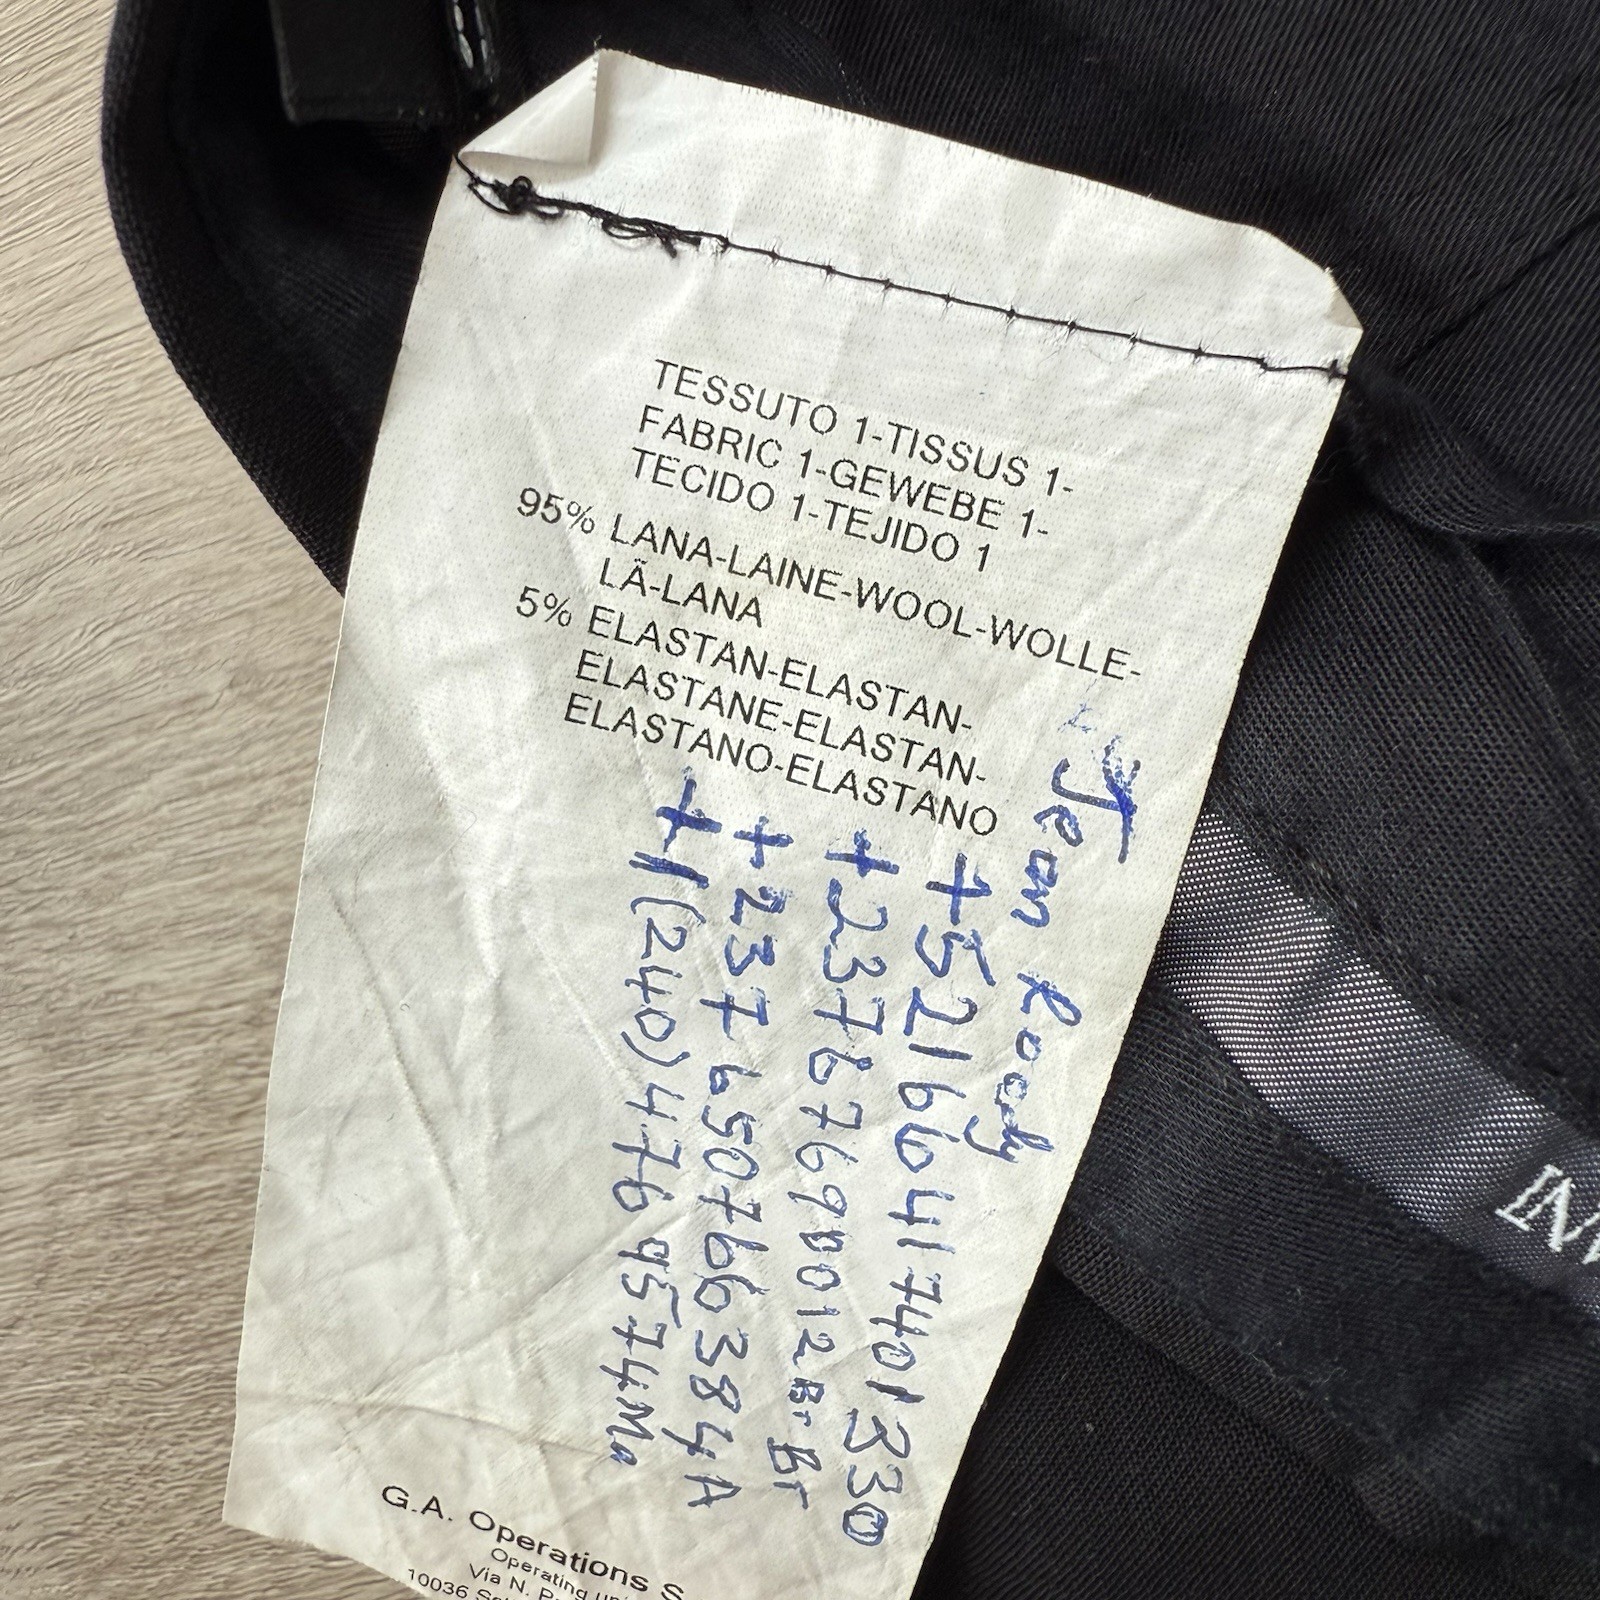 TESSUTO 1-TISSUS 1-
FABRIC 1-GEWEBE 1-
TECIDO 1-TEJIDO 1
95% LANA-LAINE-WOOL-WOLLE-
LÃ-LANA
5% ELASTAN-ELASTAN-
ELASTANE-ELASTAN-
ELASTANO-ELASTANO
Jean Roody
+52166417401330
+23767690012Br Br
+237650766384A
+1(240)476 9574Ma
G.A. Operations S
Operating
Via N.
10036